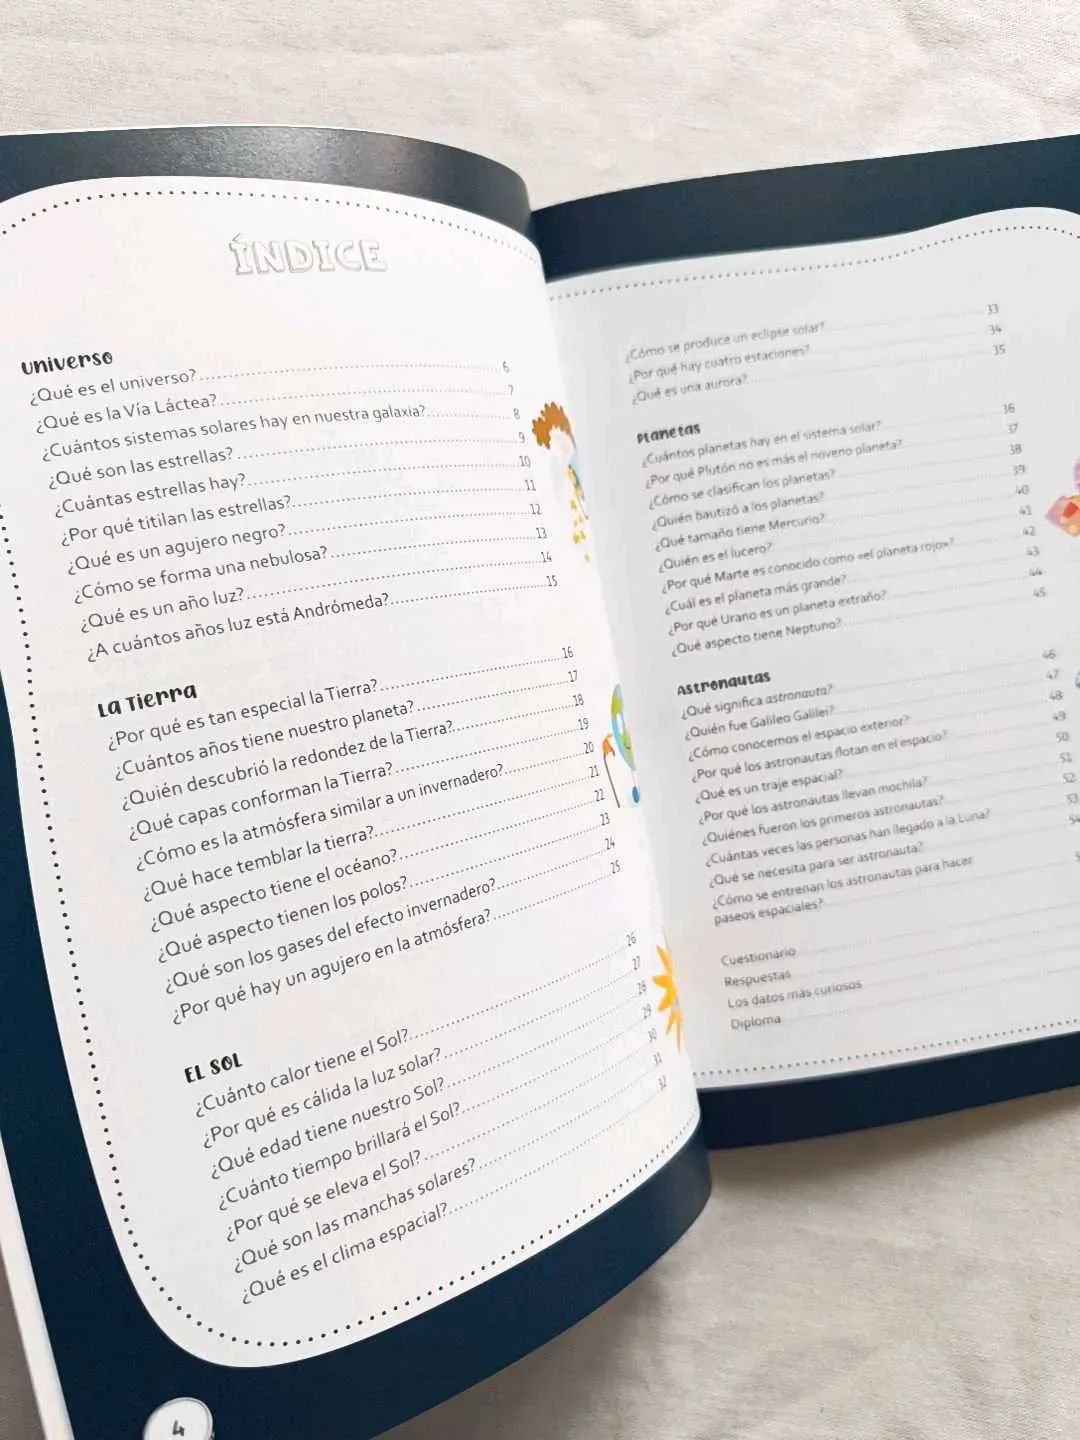 ÍNDICE
Universo
¿Qué es el universo? 6
¿Qué es la Vía Láctea? 7
¿Cuántos sistemas solares hay en nuestra galaxia? 8
¿Qué son las estrellas? 9
¿Cuántas estrellas hay? 10
¿Por qué titilan las estrellas? 11
¿Qué es un agujero negro? 12
¿Cómo se forma una nebulosa? 13
¿Qué es un año luz? 14
¿A cuántos años luz está Andrómeda? 15
La Tierra
¿Por qué es tan especial la Tierra? 16
¿Cuántos años tiene nuestro planeta? 17
¿Quién descubrió la redondez de la Tierra? 18
¿Qué capas conforman la Tierra? 19
¿Cómo es la atmósfera similar a un invernadero? 20
¿Qué hace temblar la tierra? 21
¿Qué aspecto tiene el océano? 22
¿Qué aspecto tienen los polos? 23
¿Qué son los gases del efecto invernadero? 24
¿Por qué hay un agujero en la atmósfera? 25
EL SOL
¿Cuánto calor tiene el Sol? 26
¿Por qué es cálida la luz solar? 27
¿Qué edad tiene nuestro Sol? 28
¿Cuánto tiempo brillará el Sol? 29
¿Por qué se eleva el Sol? 30
¿Qué son las manchas solares? 31
¿Qué es el clima espacial? 32
4
¿Cómo se produce un eclipse solar? 33
¿Por qué hay cuatro estaciones? 34
¿Qué es una aurora? 35
Planetas
¿Cuántos planetas hay en el sistema solar? 36
¿Por qué Plutón no es más el noveno planeta? 37
¿Cómo se clasifican los planetas? 38
¿Quién bautizó a los planetas? 39
¿Qué tamaño tiene Mercurio? 40
¿Quién es el lucero? 41
¿Por qué Marte es conocido como «el planeta rojo»? 42
¿Cuál es el planeta más grande? 43
¿Por qué Urano es un planeta extraño? 44
¿Qué aspecto tiene Neptuno? 45
Astronautas
¿Qué significa astronauta? 46
¿Quién fue Galileo Galilei? 47
¿Cómo conocemos el espacio exterior? 48
¿Por qué los astronautas flotan en el espacio? 49
¿Qué es un traje espacial? 50
¿Por qué los astronautas llevan mochila? 51
¿Quiénes fueron los primeros astronautas? 52
¿Cuántas veces las personas han llegado a la Luna? 53
¿Qué se necesita para ser astronauta? 54
¿Cómo se entrenan los astronautas para hacer
paseos espaciales?
Cuestionario
Respuestas
Los datos más curiosos
Diploma